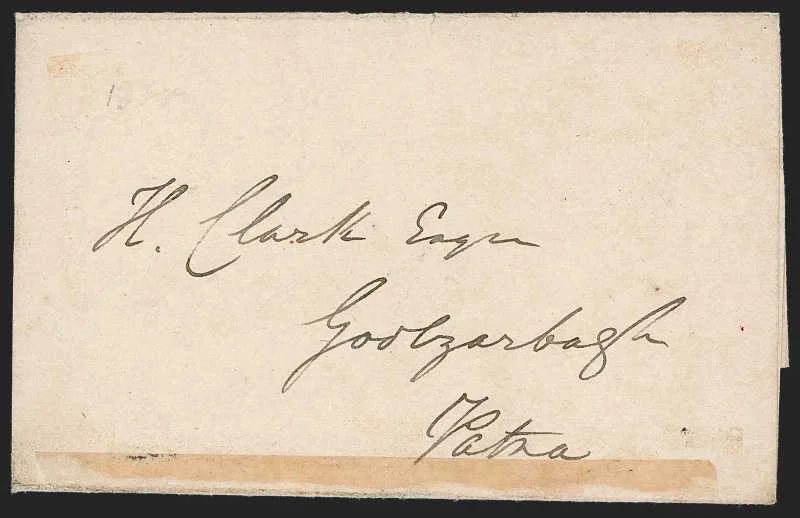 H. Clark Esqre
Goolzarbagh
Patna